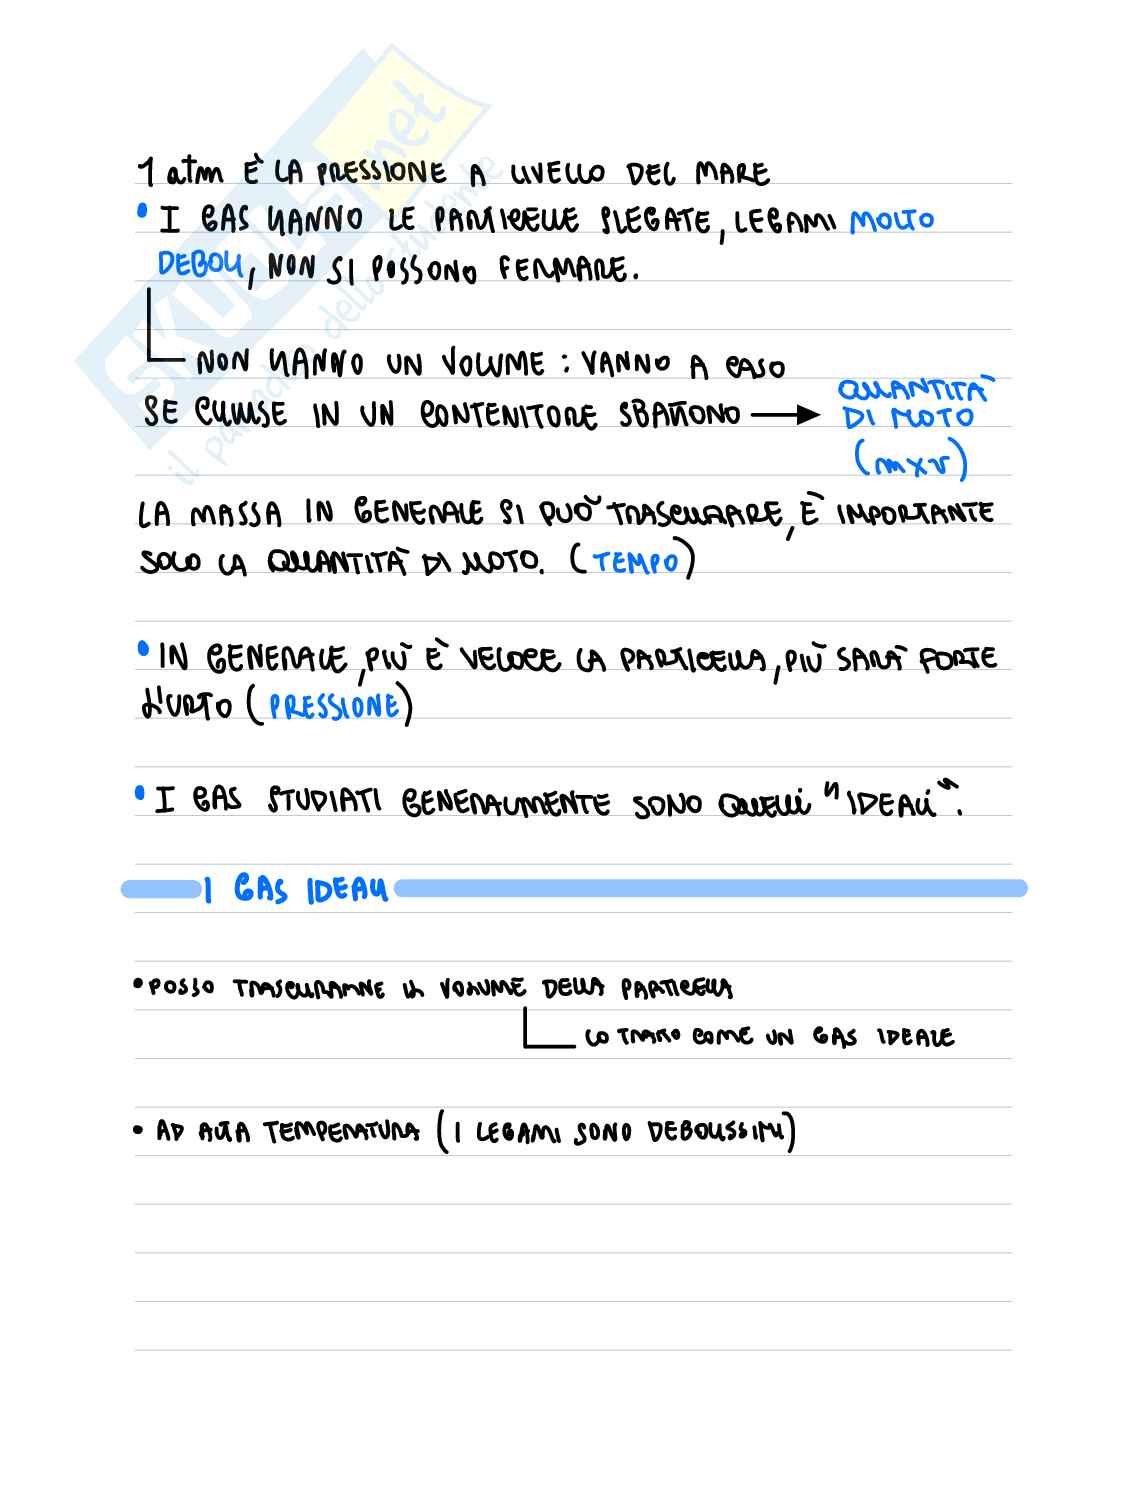 SKUOLA.net
il paradiso dello studente
1 atm È LA PRESSIONE A LIVELLO DEL MARE
• I GAS HANNO LE PARTICELLE SLEGATE, LEGAMI MOLTO
DEBOLI, NON SI POSSONO FERMARE.
NON HANNO UN VOLUME : VANNO A CASO
SE CHIUSE IN UN CONTENITORE SBATTONO → QUANTITÀ
DI MOTO
(m×v)
LA MASSA IN GENERALE SI PUÒ TRASCURARE, È IMPORTANTE
SOLO LA QUANTITÀ DI MOTO. (TEMPO)
• IN GENERALE, PIÙ È VELOCE LA PARTICELLA, PIÙ SARÀ FORTE
L'URTO (PRESSIONE)
• I GAS STUDIATI GENERALMENTE SONO QUELLI "IDEALI".
I GAS IDEALI
• POSSO TRASCURARNE IL VOLUME DELLA PARTICELLA
LO TRATTO COME UN GAS IDEALE
• AD ALTA TEMPERATURA (I LEGAMI SONO DEBOLISSIMI)